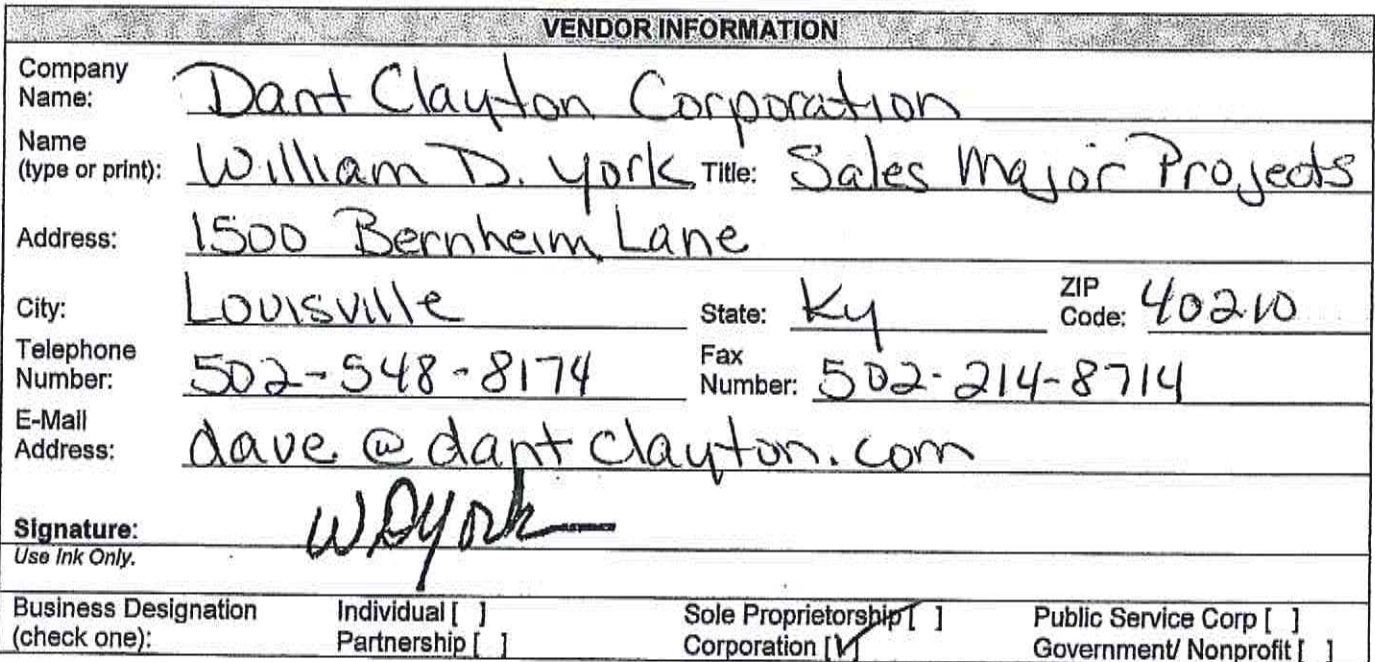 VENDOR INFORMATION
Company Name: Dant Clayton Corporation
Name (type or print): William D. York Title: Sales Major Projects
Address: 1500 Bernheim Lane
City: Louisville State: Ky ZIP Code: 40210
Telephone Number: 502-548-8174 Fax Number: 502-214-8714
E-Mail Address: dave@dantclayton.com
Signature: WDYork
Use Ink Only.
Business Designation (check one): Individual [ ] Sole Proprietorship [ ] Public Service Corp [ ]
Partnership [ ] Corporation [✓] Government/ Nonprofit [ ]